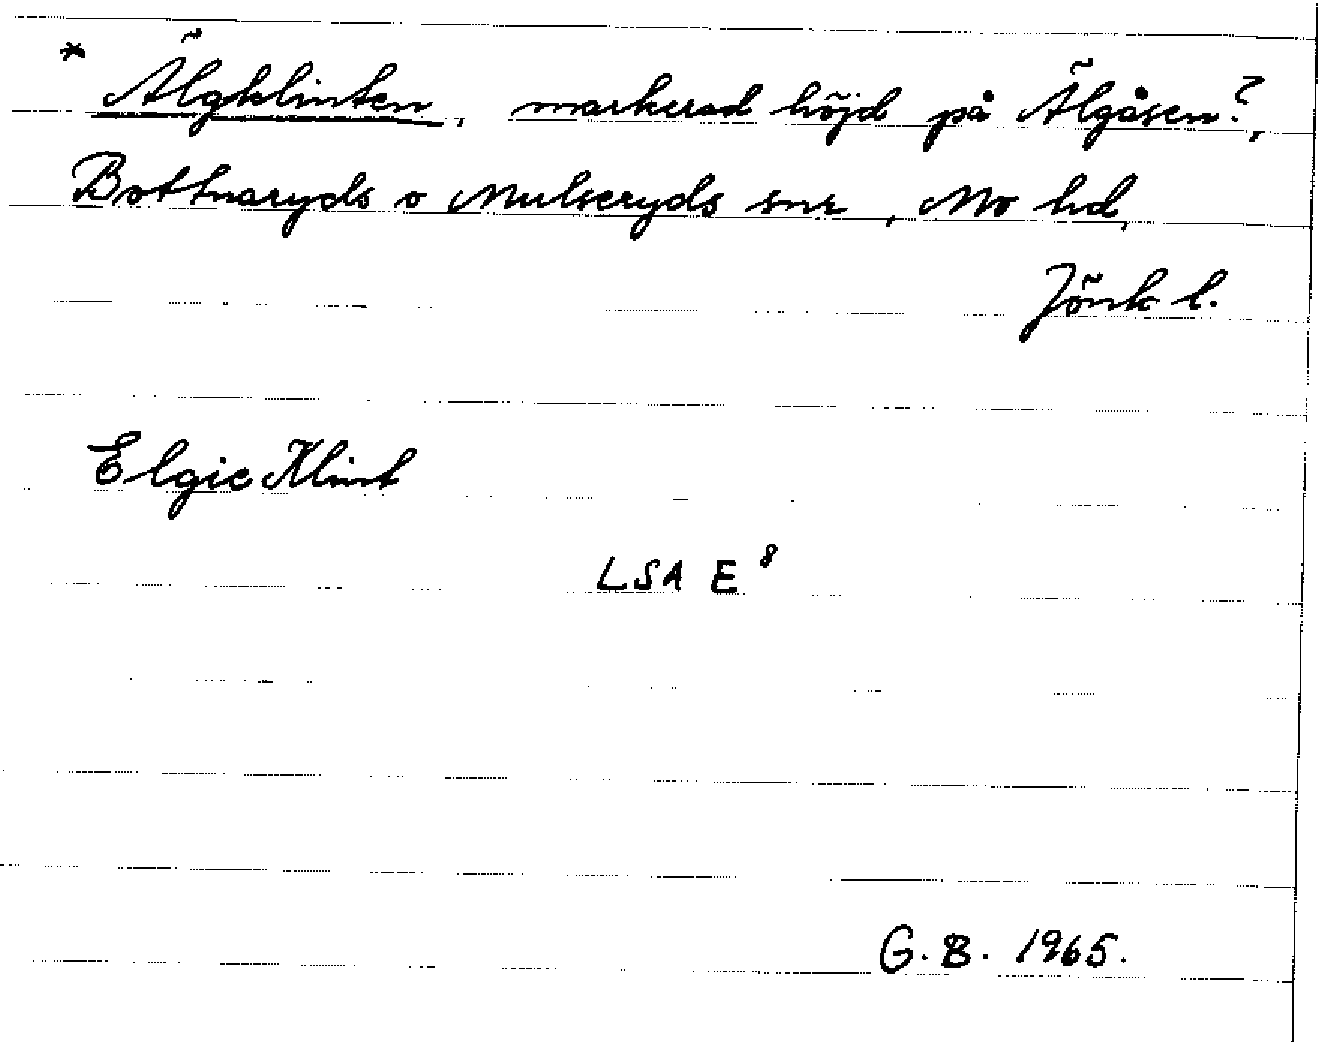 * Älgklinten, markerad höjd på Älgåsen?,
Bottnaryds o Mulseryds snr, Mo hd,
Jönk l.
Elgie Klint
LSA E⁸
G.B. 1965.